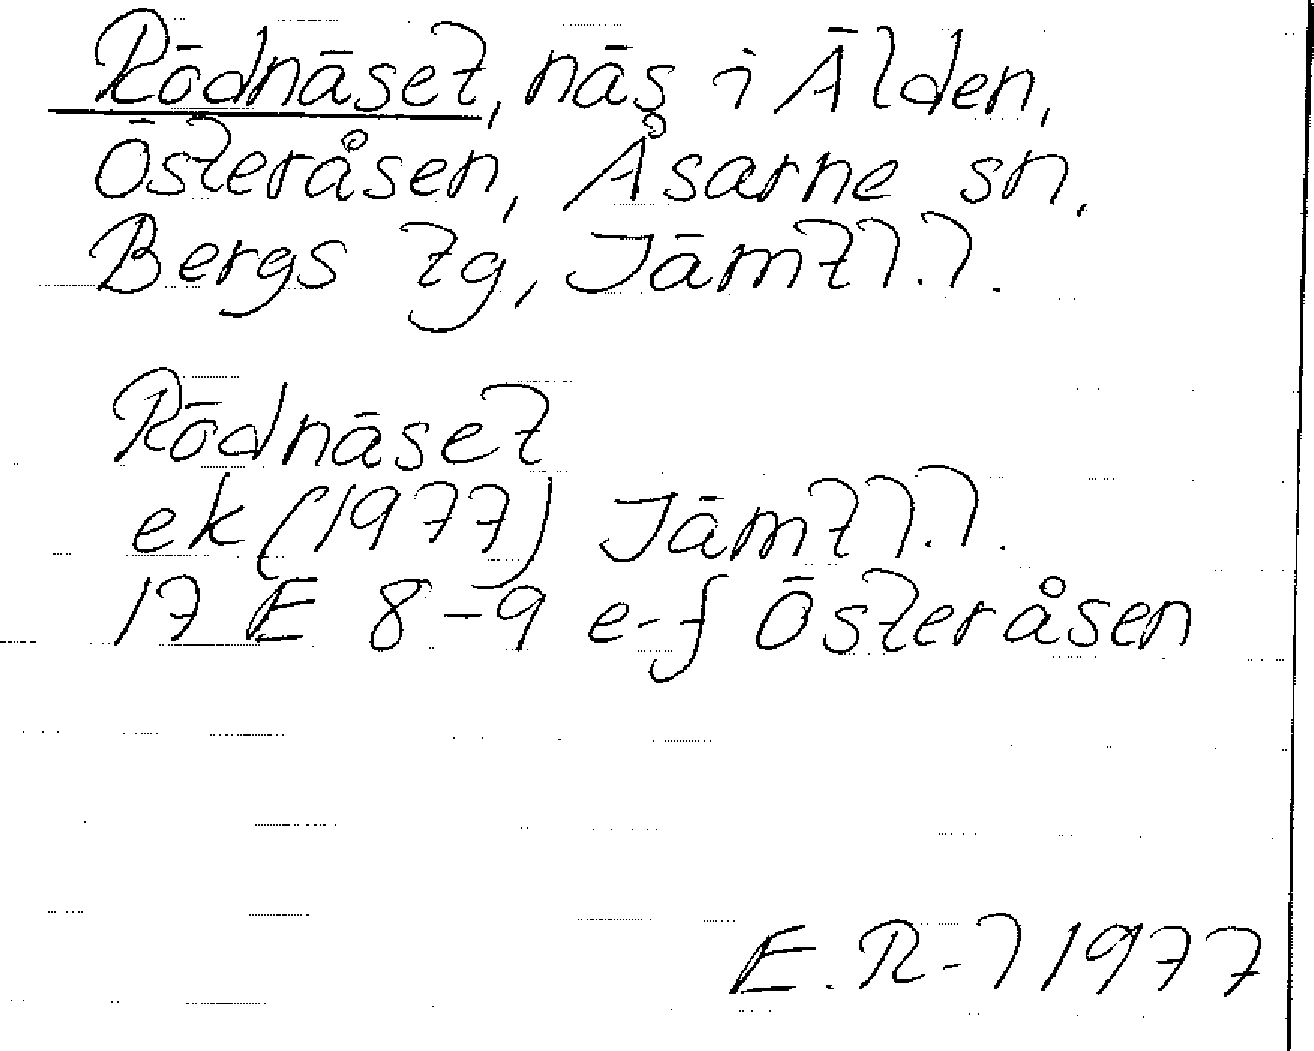 Rödnäset, näs i Älden,
Österåsen, Åsarne sn,
Bergs tg, Jämtl.l.
Rödnäset
ek (1977) Jämtl.l.
17 E 8-9 e-f Österåsen
E.R-l 1977